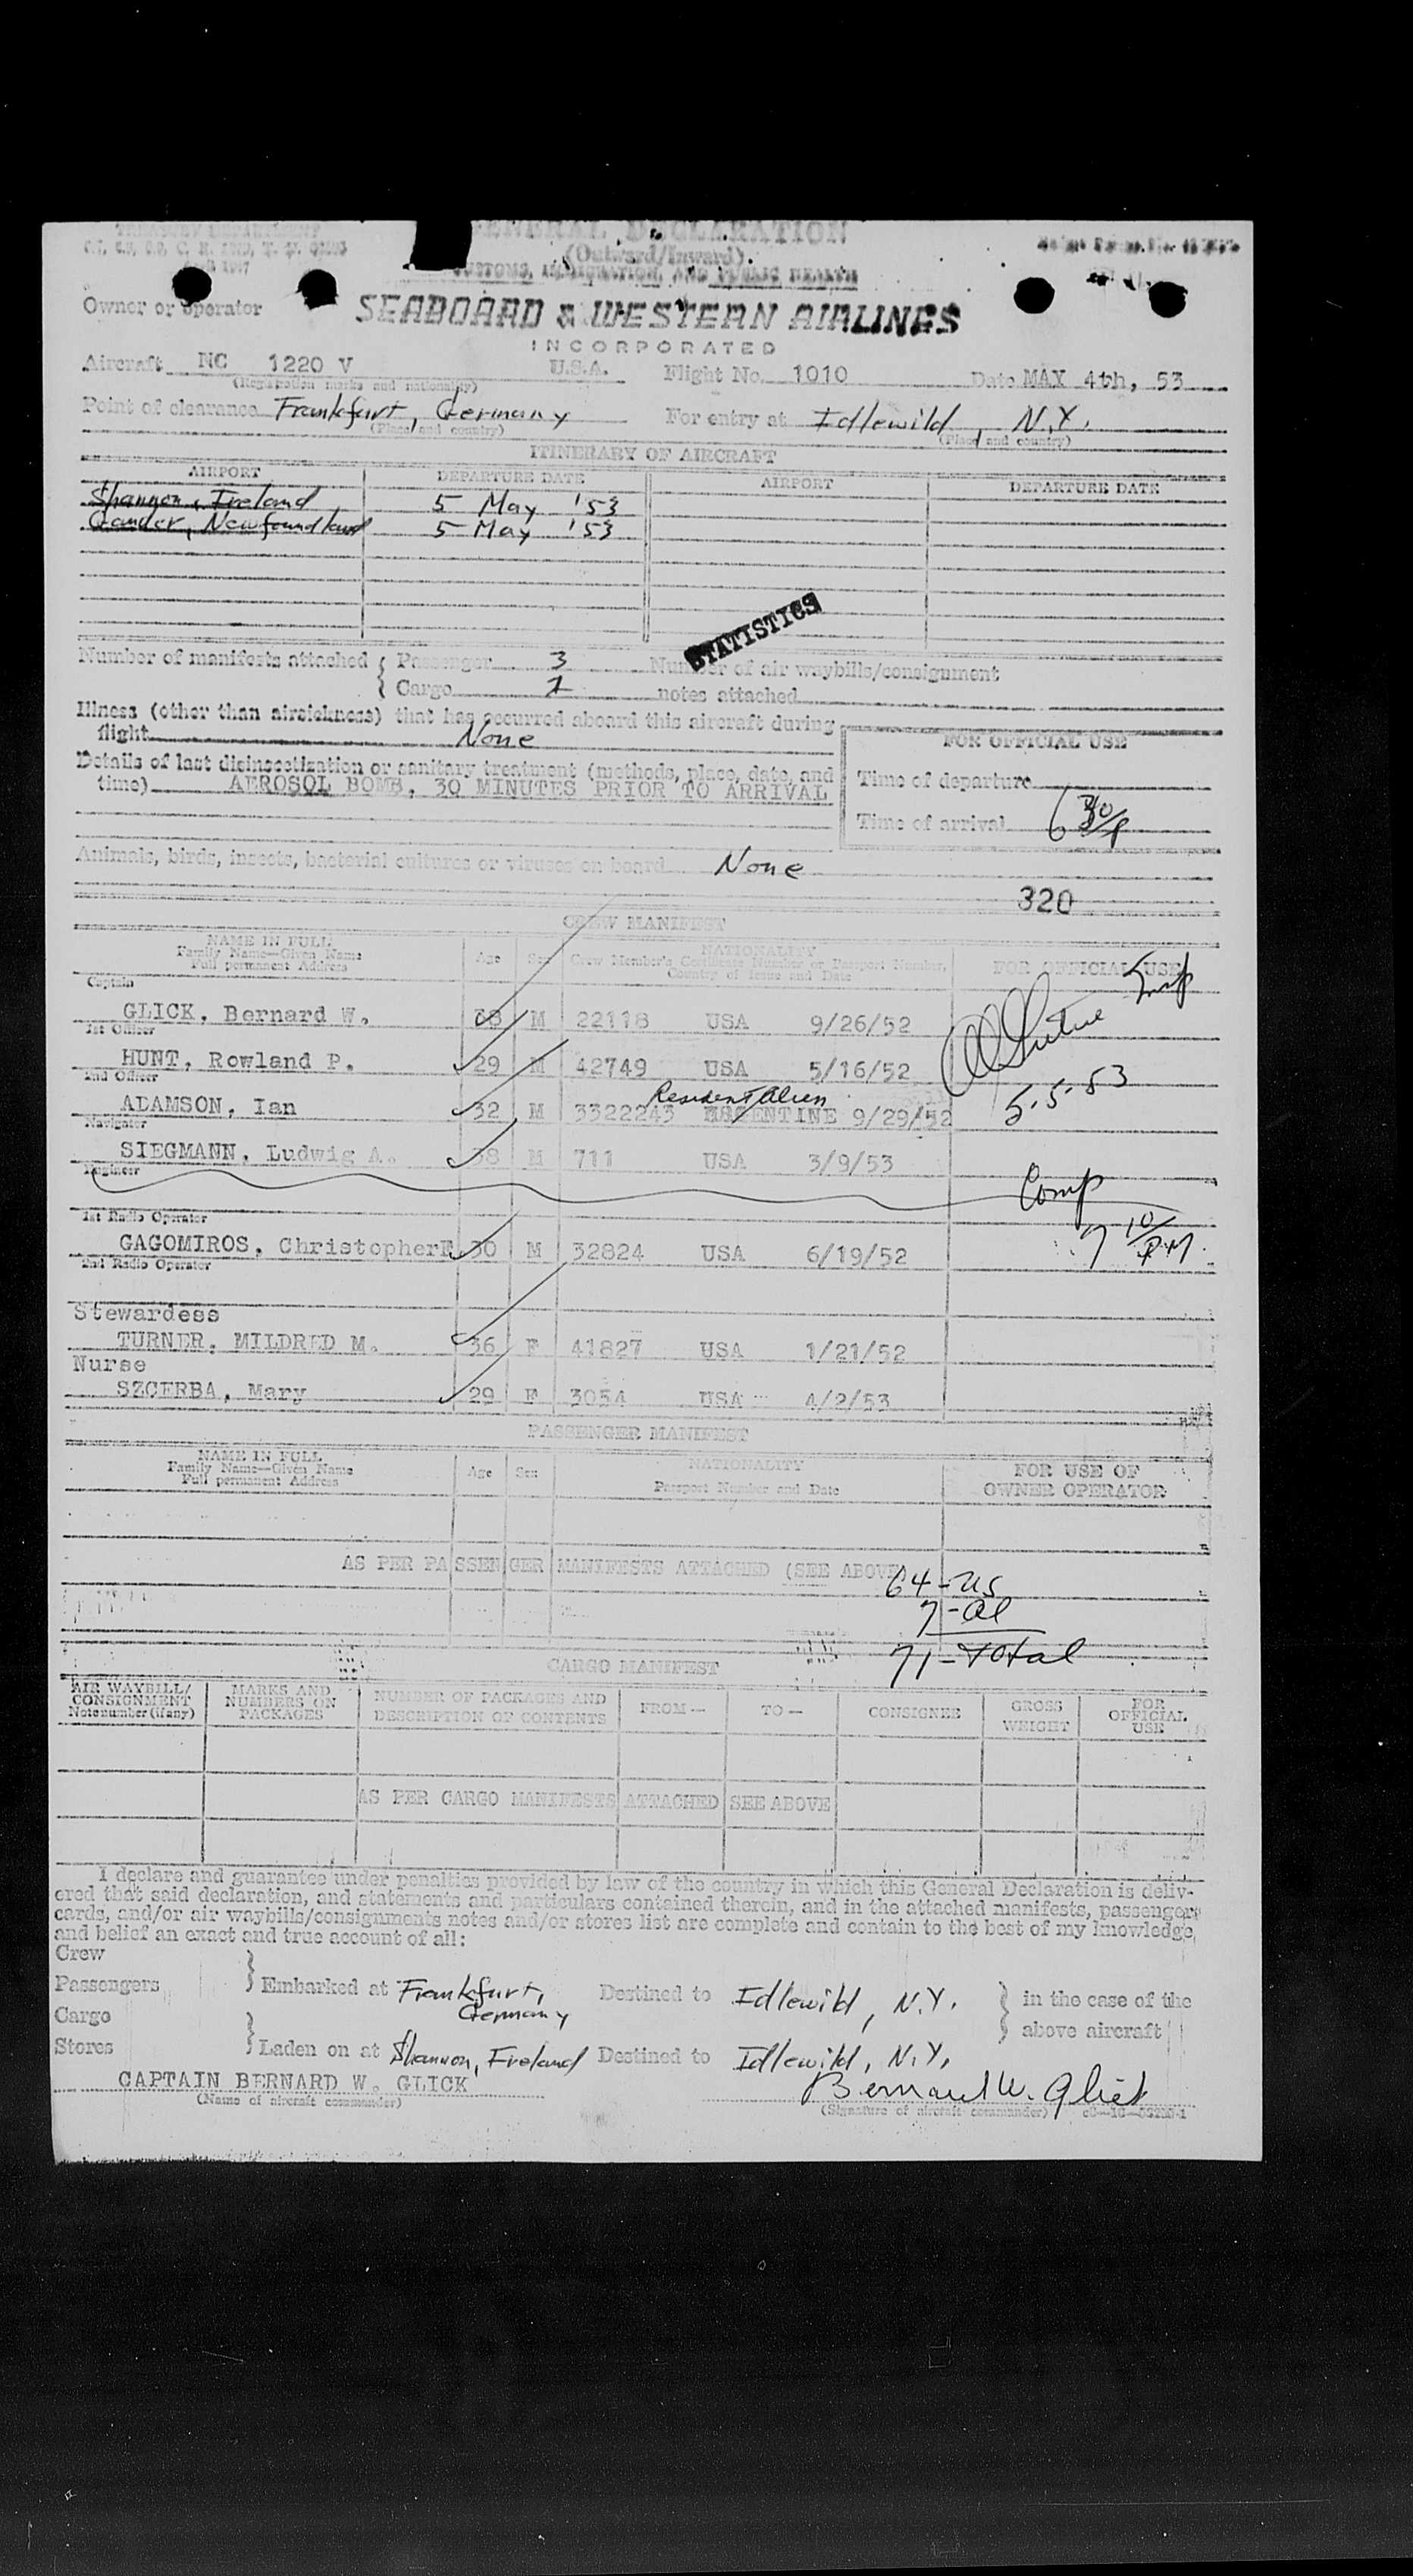 TREASURY DEPARTMENT
GENERAL DECLARATION
(Outward/Inward)
CUSTOMS, IMMIGRATION, AND PUBLIC HEALTH
Owner or operator SEABOARD & WESTERN AIRLINES
INCORPORATED
Aircraft NC 1220 V U.S.A. Flight No. 1010 Date MAY 4th, 53
(Registration marks and nationality)
Point of clearance Frankfurt, Germany For entry at Idlewild, N.Y.
(Place and country) (Place and country)
ITINERARY OF AIRCRAFT
AIRPORT DEPARTURE DATE AIRPORT DEPARTURE DATE
Shannon, Ireland 5 May '53
Gander, Newfoundland 5 May '53
STATISTICS
Number of manifests attached { Passenger 3 Number of air waybills/consignment
Cargo 1 notes attached
Illness (other than airsickness) that has occurred aboard this aircraft during
flight None
FOR OFFICIAL USE
Details of last disinsectization or sanitary treatment (methods, place, date, and
time) AEROSOL BOMB, 30 MINUTES PRIOR TO ARRIVAL
Time of departure
Time of arrival 6
Animals, birds, insects, bacterial cultures or viruses on board None
320
CREW MANIFEST
NAME IN FULL
Family Name—Given Name
Full permanent Address
Age Sex
NATIONALITY
Crew Member's Certificate Number or Passport Number,
Country of Issue and Date
FOR OFFICIAL USE
Captain
GLICK, Bernard W. 38 M 22118 USA 9/26/52
1st Officer
HUNT, Rowland P. 29 M 42749 USA 5/16/52
2nd Officer
5-5-53
Resident Alien
ADAMSON, Ian 32 M 3322243 ARGENTINE 9/29/52
Navigator
SIEGMANN, Ludwig A. 38 M 711 USA 3/9/53
Engineer
Comp
1st Radio Operator
7 10/PM
GAGOMIROS, Christopher 30 M 32824 USA 6/19/52
2nd Radio Operator
Stewardess
TURNER, MILDRED M. 36 F 41827 USA 1/21/52
Nurse
SZCERBA, Mary 29 F 3054 USA 4/2/53
PASSENGER MANIFEST
NAME IN FULL
Family Name—Given Name
Full permanent Address
Age Sex
NATIONALITY
Passport Number and Date
FOR USE OF
OWNER OPERATOR
AS PER PASSENGER MANIFESTS ATTACHED (SEE ABOVE
64-US
7-al
71-Total
CARGO MANIFEST
AIR WAYBILL/
CONSIGNMENT
Note number (if any)
MARKS AND
NUMBERS ON
PACKAGES
NUMBER OF PACKAGES AND
DESCRIPTION OF CONTENTS
FROM— TO— CONSIGNEE
GROSS
WEIGHT
FOR
OFFICIAL
USE
AS PER CARGO MANIFESTS ATTACHED SEE ABOVE
I declare and guarantee under penalties provided by law of the country in which this General Declaration is deliv-
ered that said declaration, and statements and particulars contained therein, and in the attached manifests, passengers
cards, and/or air waybills/consignments notes and/or stores list are complete and contain to the best of my knowledge,
and belief an exact and true account of all:
Crew
Passengers } Embarked at Frankfurt, Germany Destined to Idlewild, N.Y. } in the case of the
Cargo above aircraft
Stores } Laden on at Shannon, Ireland Destined to Idlewild, N.Y.
CAPTAIN BERNARD W. GLICK Bernard W. Glick
(Name of aircraft commander) (Signature of aircraft commander)